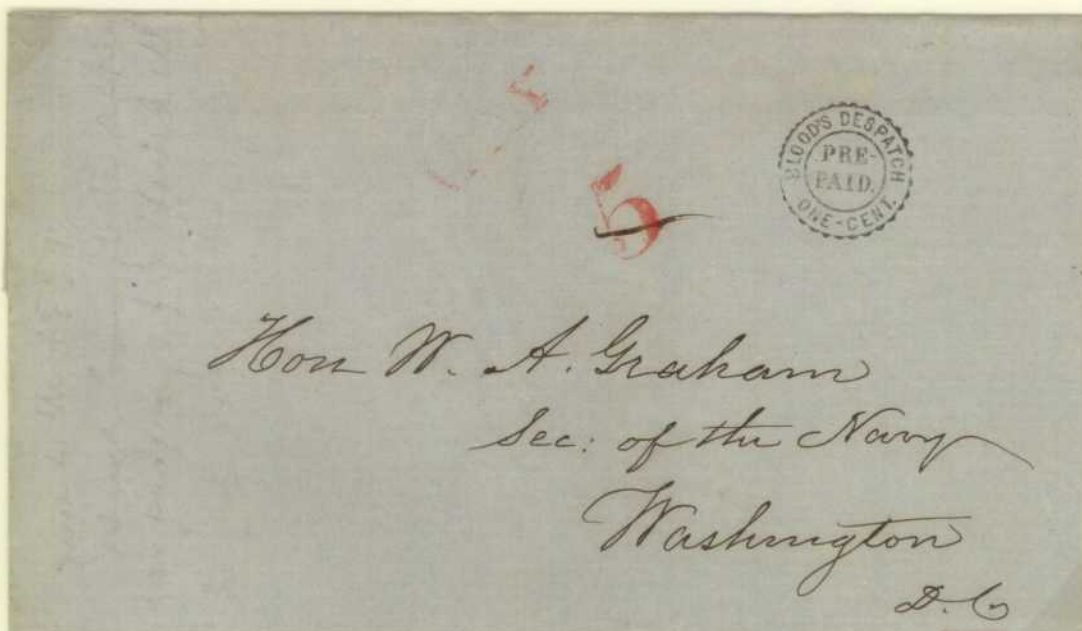 5
BLOOD'S DESPATCH
PRE-
PAID.
ONE-CENT.
Hon W. A. Graham
Sec: of the Navy
Washington
D. C